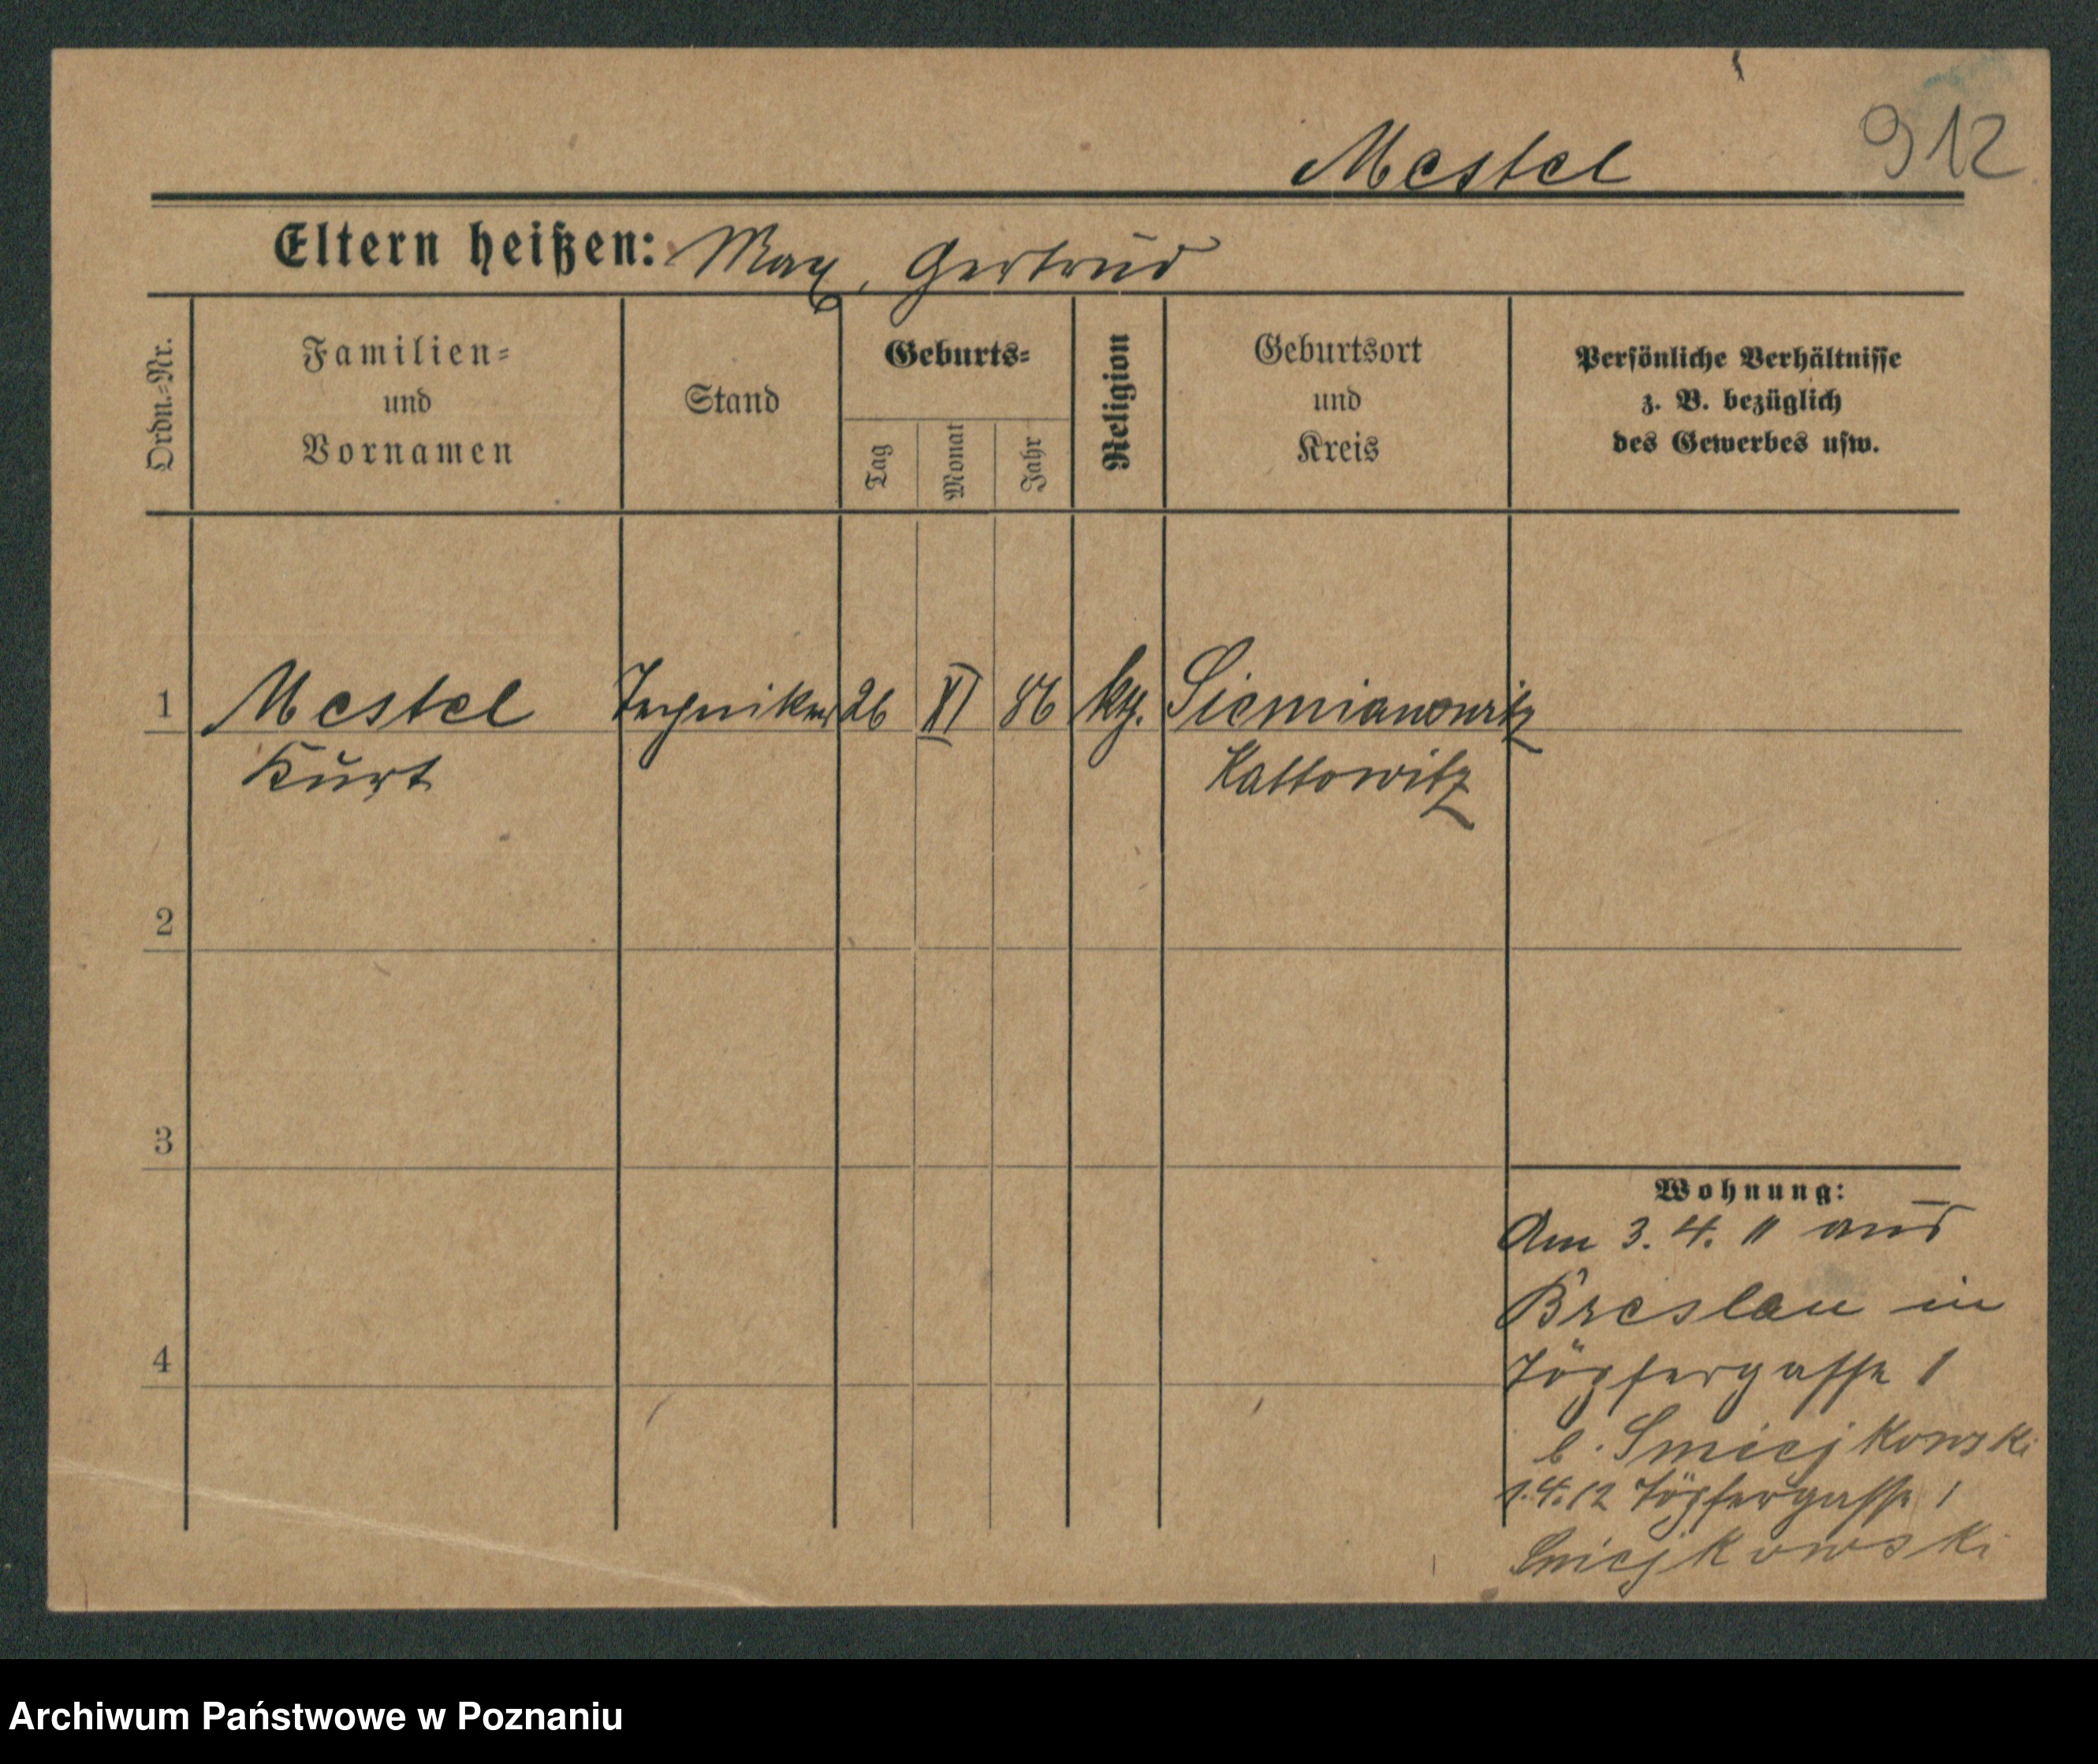 912
Mestel
Eltern heißen: Max, Gertrud
Ordn.=Nr.
Familien=
und
Vornamen
Stand
Geburts=
Tag
Monat
Jahr
Religion
Geburtsort
und
Kreis
Persönliche Verhältnisse
z. B. bezüglich
des Gewerbes usw.
1 Mestel Techniker 26 XI 86 ktg. Siemianowitz
Kurt Kattowitz
2
3
4
Wohnung:
Am 3. 4. 11 aus
Breslau in
Töpfergasse 1
b. Smiejkowski
1.4.12 Töpfergasse 1
Smiejkowski
Archiwum Państwowe w Poznaniu